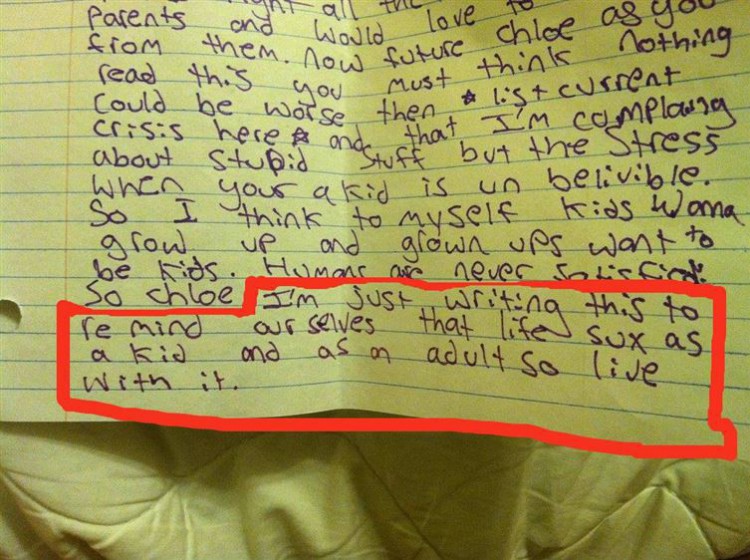 right all the
parents and would love to
from them. Now future chloe as you
read this you must think nothing
could be worse then ☆ list current
crisis here ☆ and that I'm complaing
about stupid stuff but the stress
when your a kid is un belivible.
So I think to myself kids wanna
grow up and grown ups want to
be kids. Humans are never satisfied.
So chloe I'm just writing this to
re mind our selves that life sux as
a kid and as an adult so live
with it.